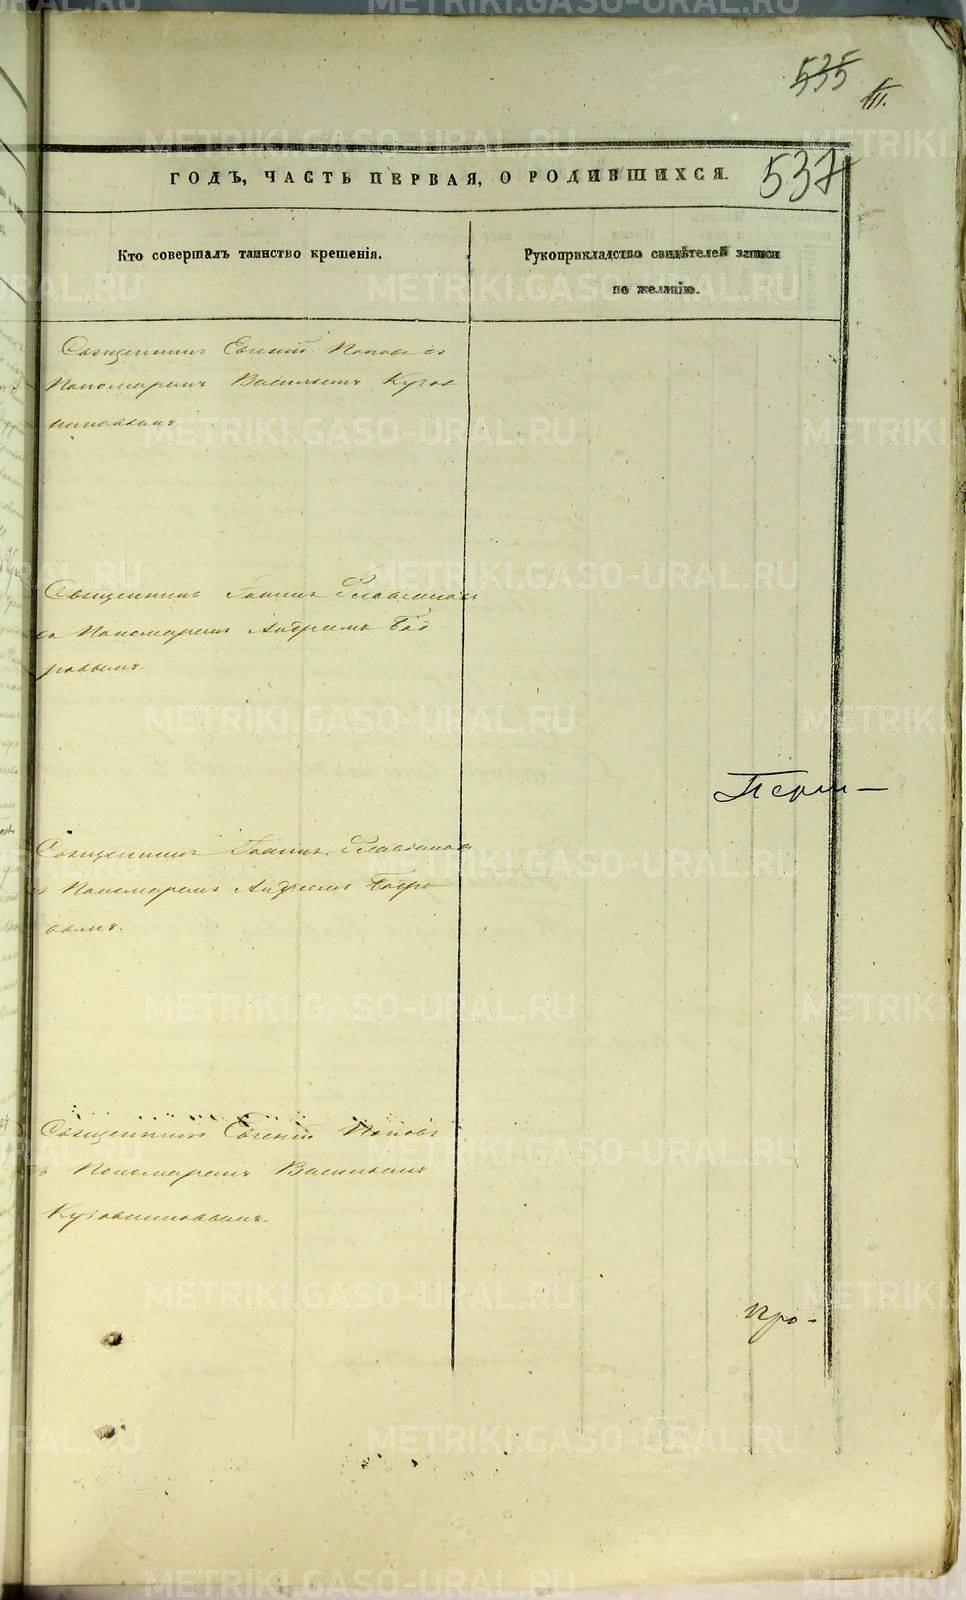 535
III.
537
ГОДЪ, ЧАСТЬ ПЕРВАЯ, О РОДИВШИХСЯ.
Кто совершалъ таинство крещенія.
Рукоприкладство свидѣтелей записи
по желанію.
Священникъ Евгеній Поповъ съ
Пономаремъ Васильемъ Кузов
никовымъ.
Священникъ Іоаннъ
съ Пономаремъ Андреемъ Бад
ровымъ.
Перм-
Священникъ Іоаннъ
съ Пономаремъ Андреемъ
вымъ.
Священникъ Евгеній Поповъ
съ Пономаремъ Васильемъ
Кузовниковымъ.
про-
METRIKI.GASO-URAL.RU